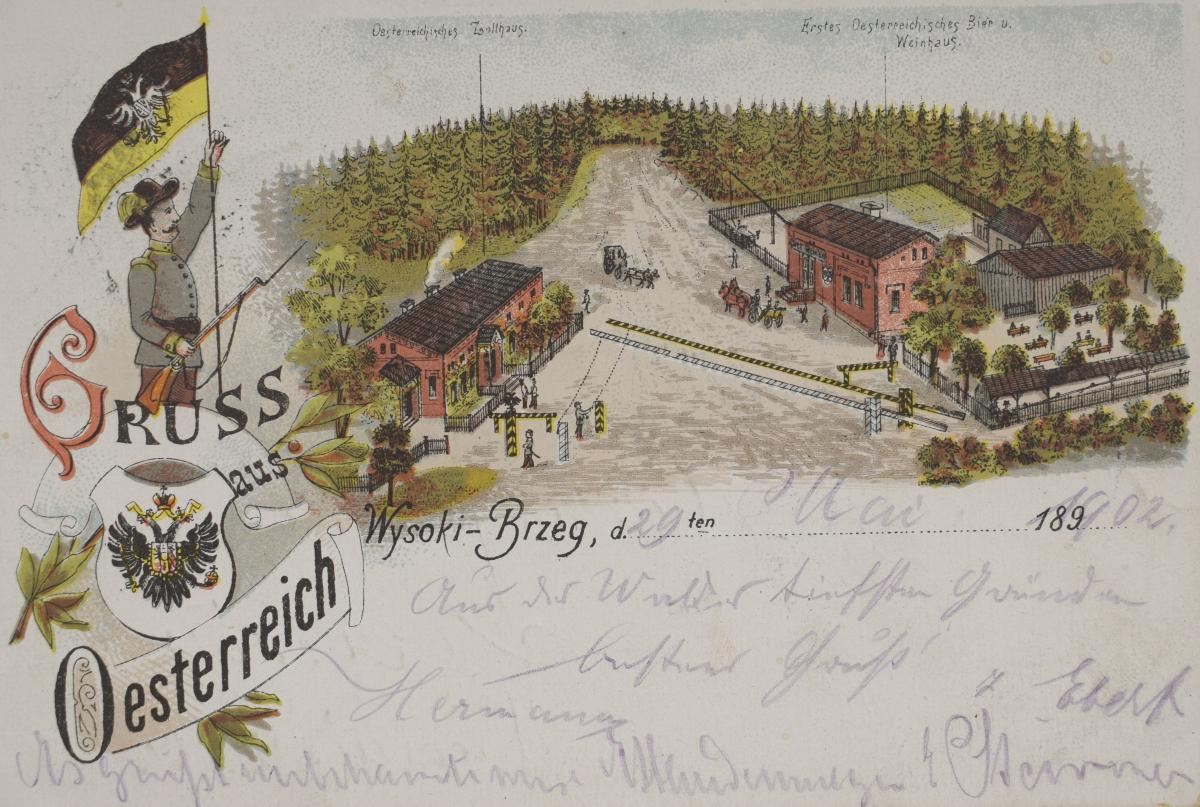 Oesterreichisches Zollhaus.
Erstes Oesterreichisches Bier u.
Weinhaus.
GRUSS
aus
Oesterreich
Wysoki-Brzeg, d. 29ten Mai 1891902.
Aus der Wälder tiefsten Gründen
besten Gruß
Hermann
Ebert